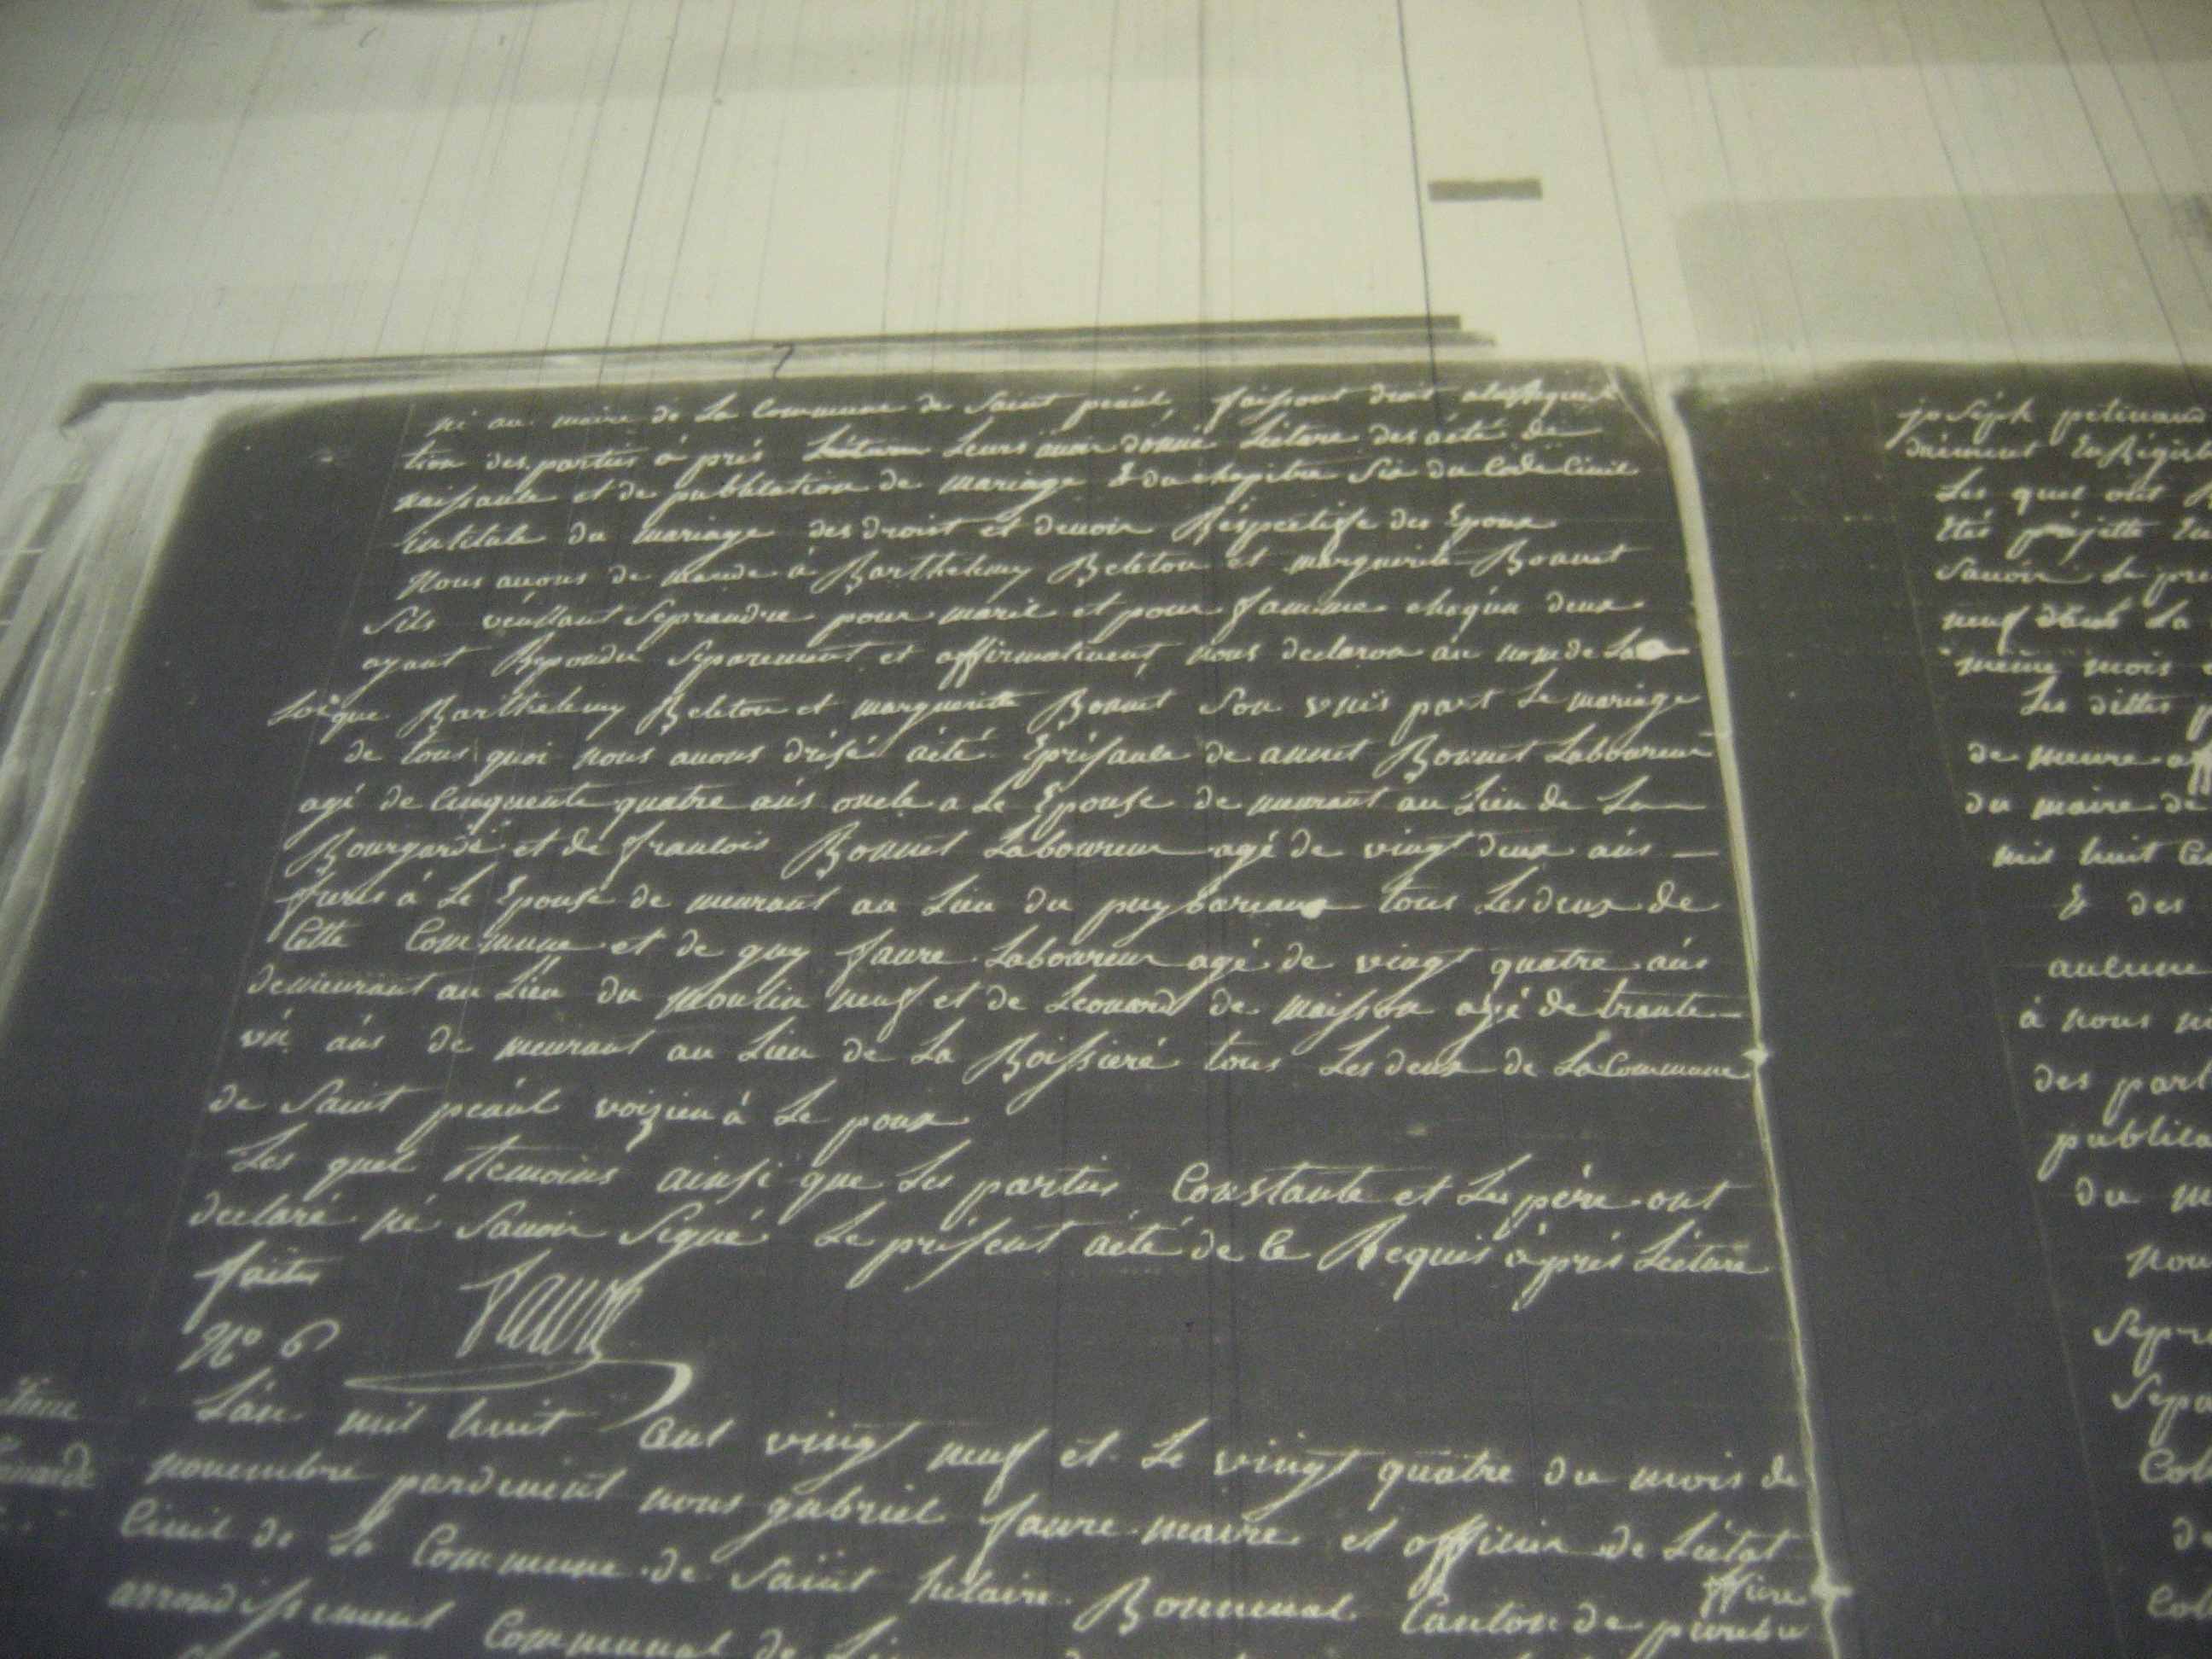 au maire de la Commune de Saint peául, faisſont droit
tion des parties á prés Leurs auoir donné Lécture des ácté de
naiſſance et de publication de mariage & du chapitre Six du Code Civil
intitule du mariage des droist et devoir Réspectiffe des Epoux
Nous auons de mande á Barthelemy Beleton et marguerite Bonnet
Sils veullant Seprandre pour marie et pour famme chaqún deux
ayant Repondu Séparement et affirmativent nous declaron au nom de La
Loi que Barthelemy Beleton et marguerite Bonnet Son vnis part Le mariage
de tous quoi nous auons drésé aité Éprisance de annet Bonnet Laboureur
agé de Cinquente quatre ans oncle a Le Epouse de meurant au Lieu de La
Bourgarde et de francois Bonnet Laboureur agé de vingt deux ans
frere á Le Epouse de meurant au Lieu du puybareaux tous Les deux de
Cette Commune et de guy faure Laboureur agé de vingt quatre ans
demeurant au Lieu du moulin neuf et de Leonard de maiſſon agé de trante
vn ans de meurant au Lieu de La Boiſſieré tous Les deux de La Commune
de Saint peául voizien á Le poux
Les quel temoins ainſi que Les parties Constante et Les pére ont
declaré né Savoir Signé Le préſent aité de Ce Requis áprés Lécture
faitte
Faure
No 6
L'an mil huit Cent vingt neuf et Le vingt quatre du mois de
novembre pardevent nous gabriel faure maire et officier de Létat
Civil de La Commune de Saint hilaire Bonneval Canton de pierebu
ffiere
arrondiſſement Communal de
joséph
Les quel ont
Savoir Le
neuf La
méme mois
Les dittes
de meure
du maire de
mil huit
& des
aucune
á nous
des part
publica
du